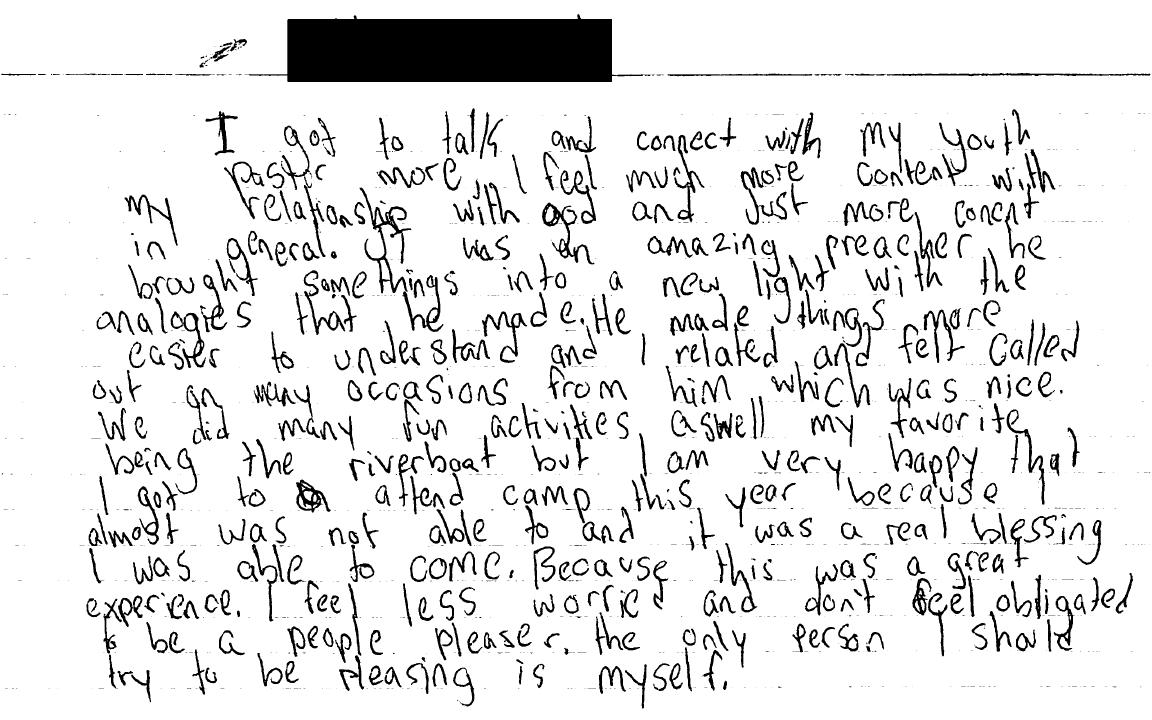 I got to talk and connect with my youth
pastor more, I feel much more content with
my relationship with god and just more concnt
in general. JT was an amazing preacher he
brought some things into a new light with the
analogies that he made. He made things more
easier to understand and I related and felt called
out on many occasions from him which was nice.
We did many fun activities aswell my favorite
being the riverboat but I am very happy that
I got to attend camp this year because I
almost was not able to and it was a real blessing
I was able to come. Because this was a great
experience. I feel less worried and don't feel obligated
to be a people pleaser, the only person I should
try to be pleasing is myself.